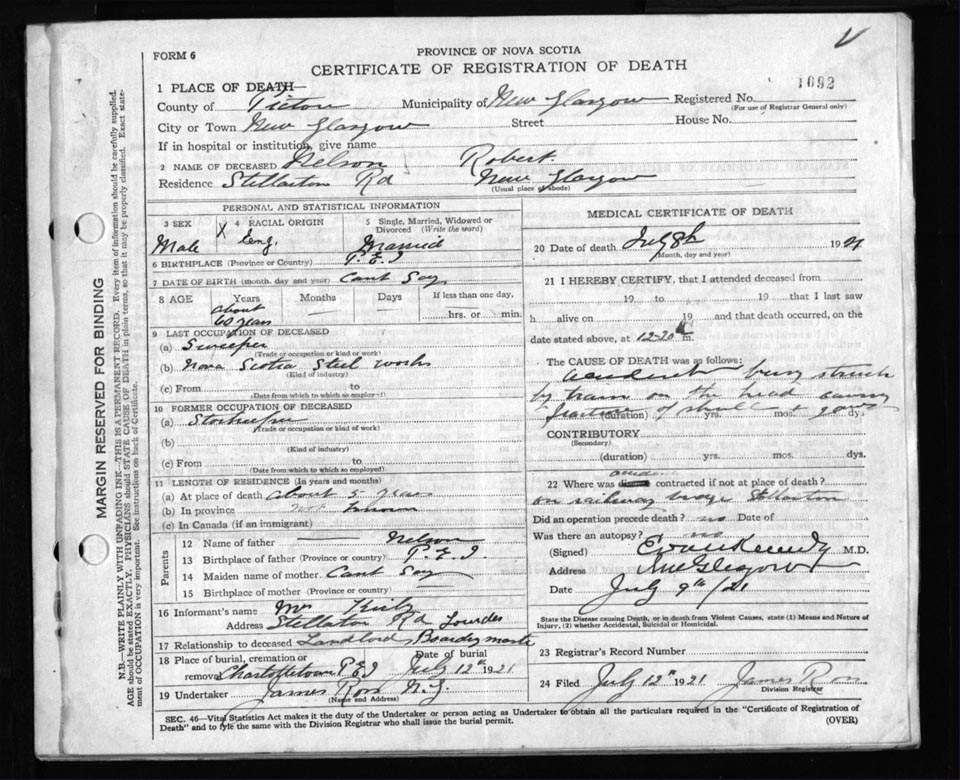 V
FORM 6
PROVINCE OF NOVA SCOTIA
CERTIFICATE OF REGISTRATION OF DEATH
1092
1 PLACE OF DEATH—
County of Pictou Municipality of New Glasgow Registered No.
(For use of Registrar General only)
City or Town New Glasgow Street House No.
If in hospital or institution, give name
2 NAME OF DECEASED Nelson Robert
Residence Stellarton Rd New Glasgow
(Usual place of abode)
PERSONAL AND STATISTICAL INFORMATION
3 SEX Male
X 4 RACIAL ORIGIN Eng.
5 Single, Married, Widowed or Divorced (Write the word) Married
6 BIRTHPLACE (Province or Country) P.E.I
7 DATE OF BIRTH (month, day and year) Cant Say
8 AGE Years Months Days If less than one day,
about 60 years hrs. or min.
9 LAST OCCUPATION OF DECEASED
(a) Sweeper
(Trade or occupation or kind of work)
(b) Nova Scotia Steel Works
(Kind of industry)
(c) From to
(Date from which to which so employed)
10 FORMER OCCUPATION OF DECEASED
(a) Storekeeper
(Trade or occupation or kind of work)
(b)
(Kind of industry)
(c) From to
(Date from which to which so employed)
11 LENGTH OF RESIDENCE (In years and months)
(a) At place of death about 5 years
(b) In province not known
(c) In Canada (if an immigrant)
Parents
12 Name of father Nelson
13 Birthplace of father (Province or country) P.E.I
14 Maiden name of mother Cant Say
15 Birthplace of mother (Province or country)
16 Informant's name Mr
Address Stellarton Rd Lourdes
17 Relationship to deceased Landlord Boarding
18 Place of burial, cremation or removal Charlottetown P.E.I
Date of burial July 12th 1921
19 Undertaker James Ross N.G.
(Name and Address)
MEDICAL CERTIFICATE OF DEATH
20 Date of death July 8th 1921
(Month, day and year)
21 I HEREBY CERTIFY, that I attended deceased from
19 to 19 that I last saw
h alive on 19 and that death occurred, on the
date stated above, at 12-20 m.
The CAUSE OF DEATH was as follows:
accident being struck
by train on the head causing
fracture of skull
(duration) yrs. mos. dy.
CONTRIBUTORY
(Secondary)
(duration) yrs. mos. dys.
22 Where was contracted if not at place of death?
on railway bridge Stellarton
Did an operation precede death? no Date of
Was there an autopsy? no
(Signed) Kennedy M.D.
Address New Glasgow
Date July 9th/21
State the Disease causing Death, or in death from Violent Causes, state (1) Means and Nature of Injury, (2) whether Accidental, Suicidal or Homicidal.
23 Registrar's Record Number
24 Filed July 12th 1921 James Ross
Division Registrar
SEC. 46—Vital Statistics Act makes it the duty of the Undertaker or person acting as Undertaker to obtain all the particulars required in the "Certificate of Registration of
Death" and to fyle the same with the Division Registrar who shall issue the burial permit. (OVER)
MARGIN RESERVED FOR BINDING
N.B.—WRITE PLAINLY WITH UNFADING INK—THIS IS A PERMANENT RECORD. Every item of information should be carefully supplied.
AGE should be stated EXACTLY. PHYSICIANS should STATE CAUSE OF DEATH in plain terms, so that it may be properly classified. Exact state-
ment of OCCUPATION is very important. See instructions on back of Certificate.